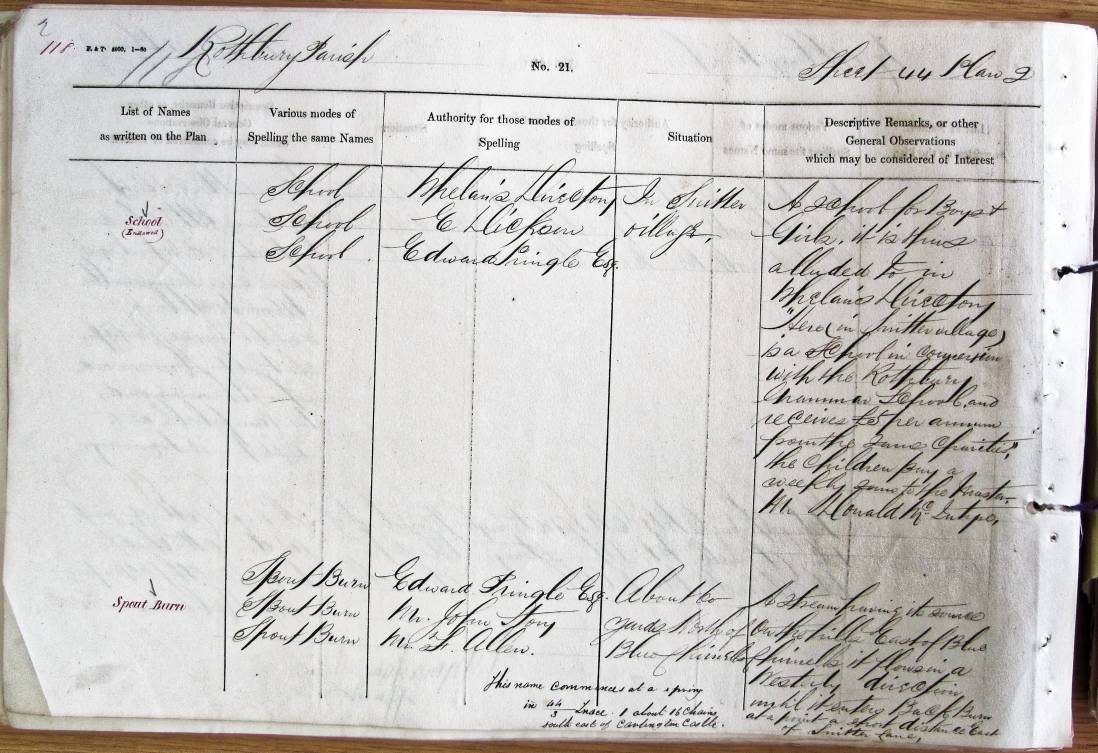 2
118
E & T. 5000. 1—60
Rothbury Parish
No. 21.
Sheet 44 Plan 2
List of Names
as written on the Plan
Various modes of
Spelling the same Names
Authority for those modes of
Spelling
Situation
Descriptive Remarks, or other
General Observations
which may be considered of Interest
School
(Endowed)
School
School
School
Whelan's Directory
E Dickson
Edward Pringle Esq.
In Snitter
village.
A School for Boys &
Girls, it is thus
alluded to in
Whelan's Directory
"Here (in Snitter village)
is a School in connexion
with the Rothbury
Grammar School, and
receives £5 per annum
from the same Charities",
the children pay a
weekly sum to the master
Mr Donald McIntyre,
Spout Burn
Spout Burn
Spout Burn
Spout Burn
Edward Pringle Esq.
Mr. John Tory
Mr. F. Allen.
About 60
yards North of
Blue Chirnells
A stream having its source
on the hills East of Blue
Chirnells it flows in a
Westerly direction
until it enters Back Burn
at a point a short distance East
of Snitter Lane,
This name commences at a spring
in 44/3 Trace. 1 about 16 chains
south east of Cartington Castle.